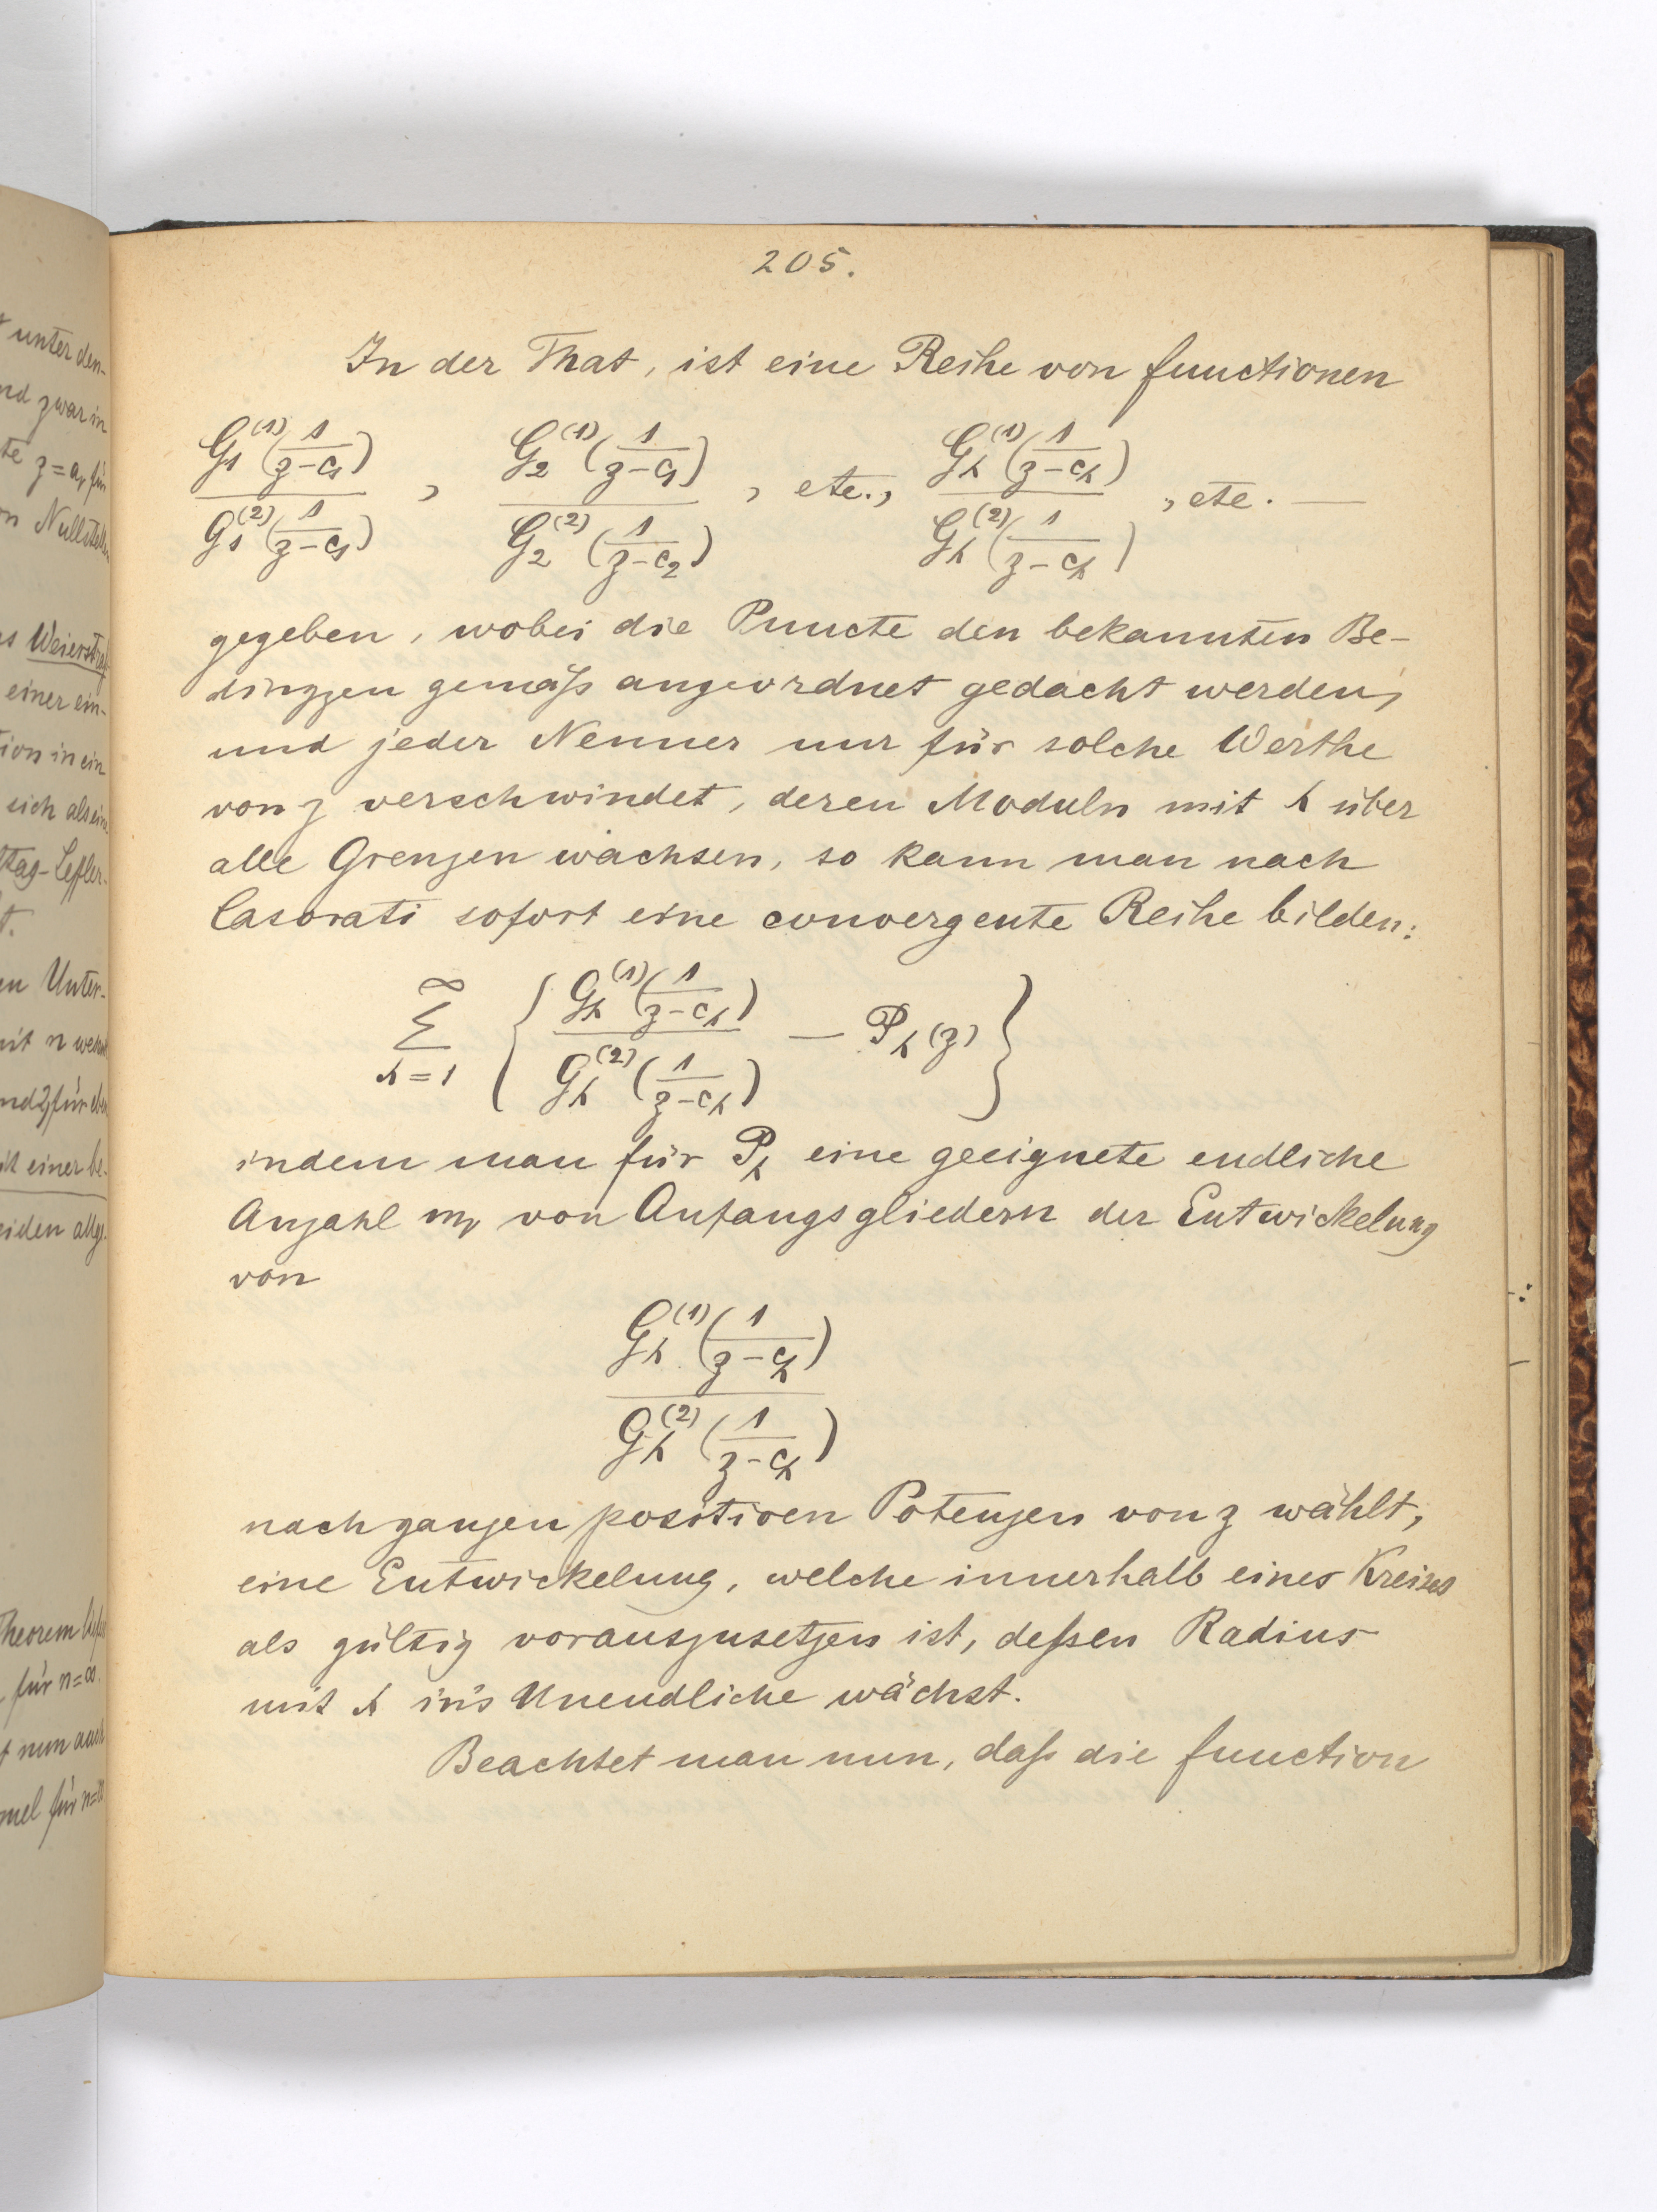 unter den-
nd zwar in
te z = a, für
n Nullstellen
s Weierstraß
einer ein-
tion in ein
sich als ein
ttag-Leffler-
t.
en Unter-
it n
für
it einer be-
eiden allg.
Theorem
für n=∞.
t nun auch
mel für n=∞
205.
In der That, ist eine Reihe von Functionen
G₁^(1)(1/(z-c₁)) / G₁^(2)(1/(z-c₁)) , G₂^(1)(1/(z-c₁)) / G₂^(2)(1/(z-c₂)) , etc., G_h^(1)(1/(z-c_h)) / G_h^(2)(1/(z-c_h)) , etc. —
gegeben, wobei die Puncte den bekannten Be-
dinggen gemäß angeordnet gedacht werden,
und jeder Nenner nur für solche Werthe
von z verschwindet, deren Moduln mit h über
alle Grenzen wachsen, so kann man nach
Casorati sofort eine convergente Reihe bilden:
∞ Σ h=1 { G_h^(1)(1/(z-c_h)) / G_h^(2)(1/(z-c_h)) — P_h(z) }
indem man für P_h eine geeignete endliche
Anzahl von Anfangsgliedern der Entwickelung
von
G_h^(1)(1/(z-c_h)) / G_h^(2)(1/(z-c_h))
nach ganzen positiven Potenzen von z wählt,
eine Entwickelung, welche innerhalb eines Kreises
als gültig vorauszusetzen ist, deßen Radius
mit h in's Unendliche wächst.
Beachtet man nun, daß die Function